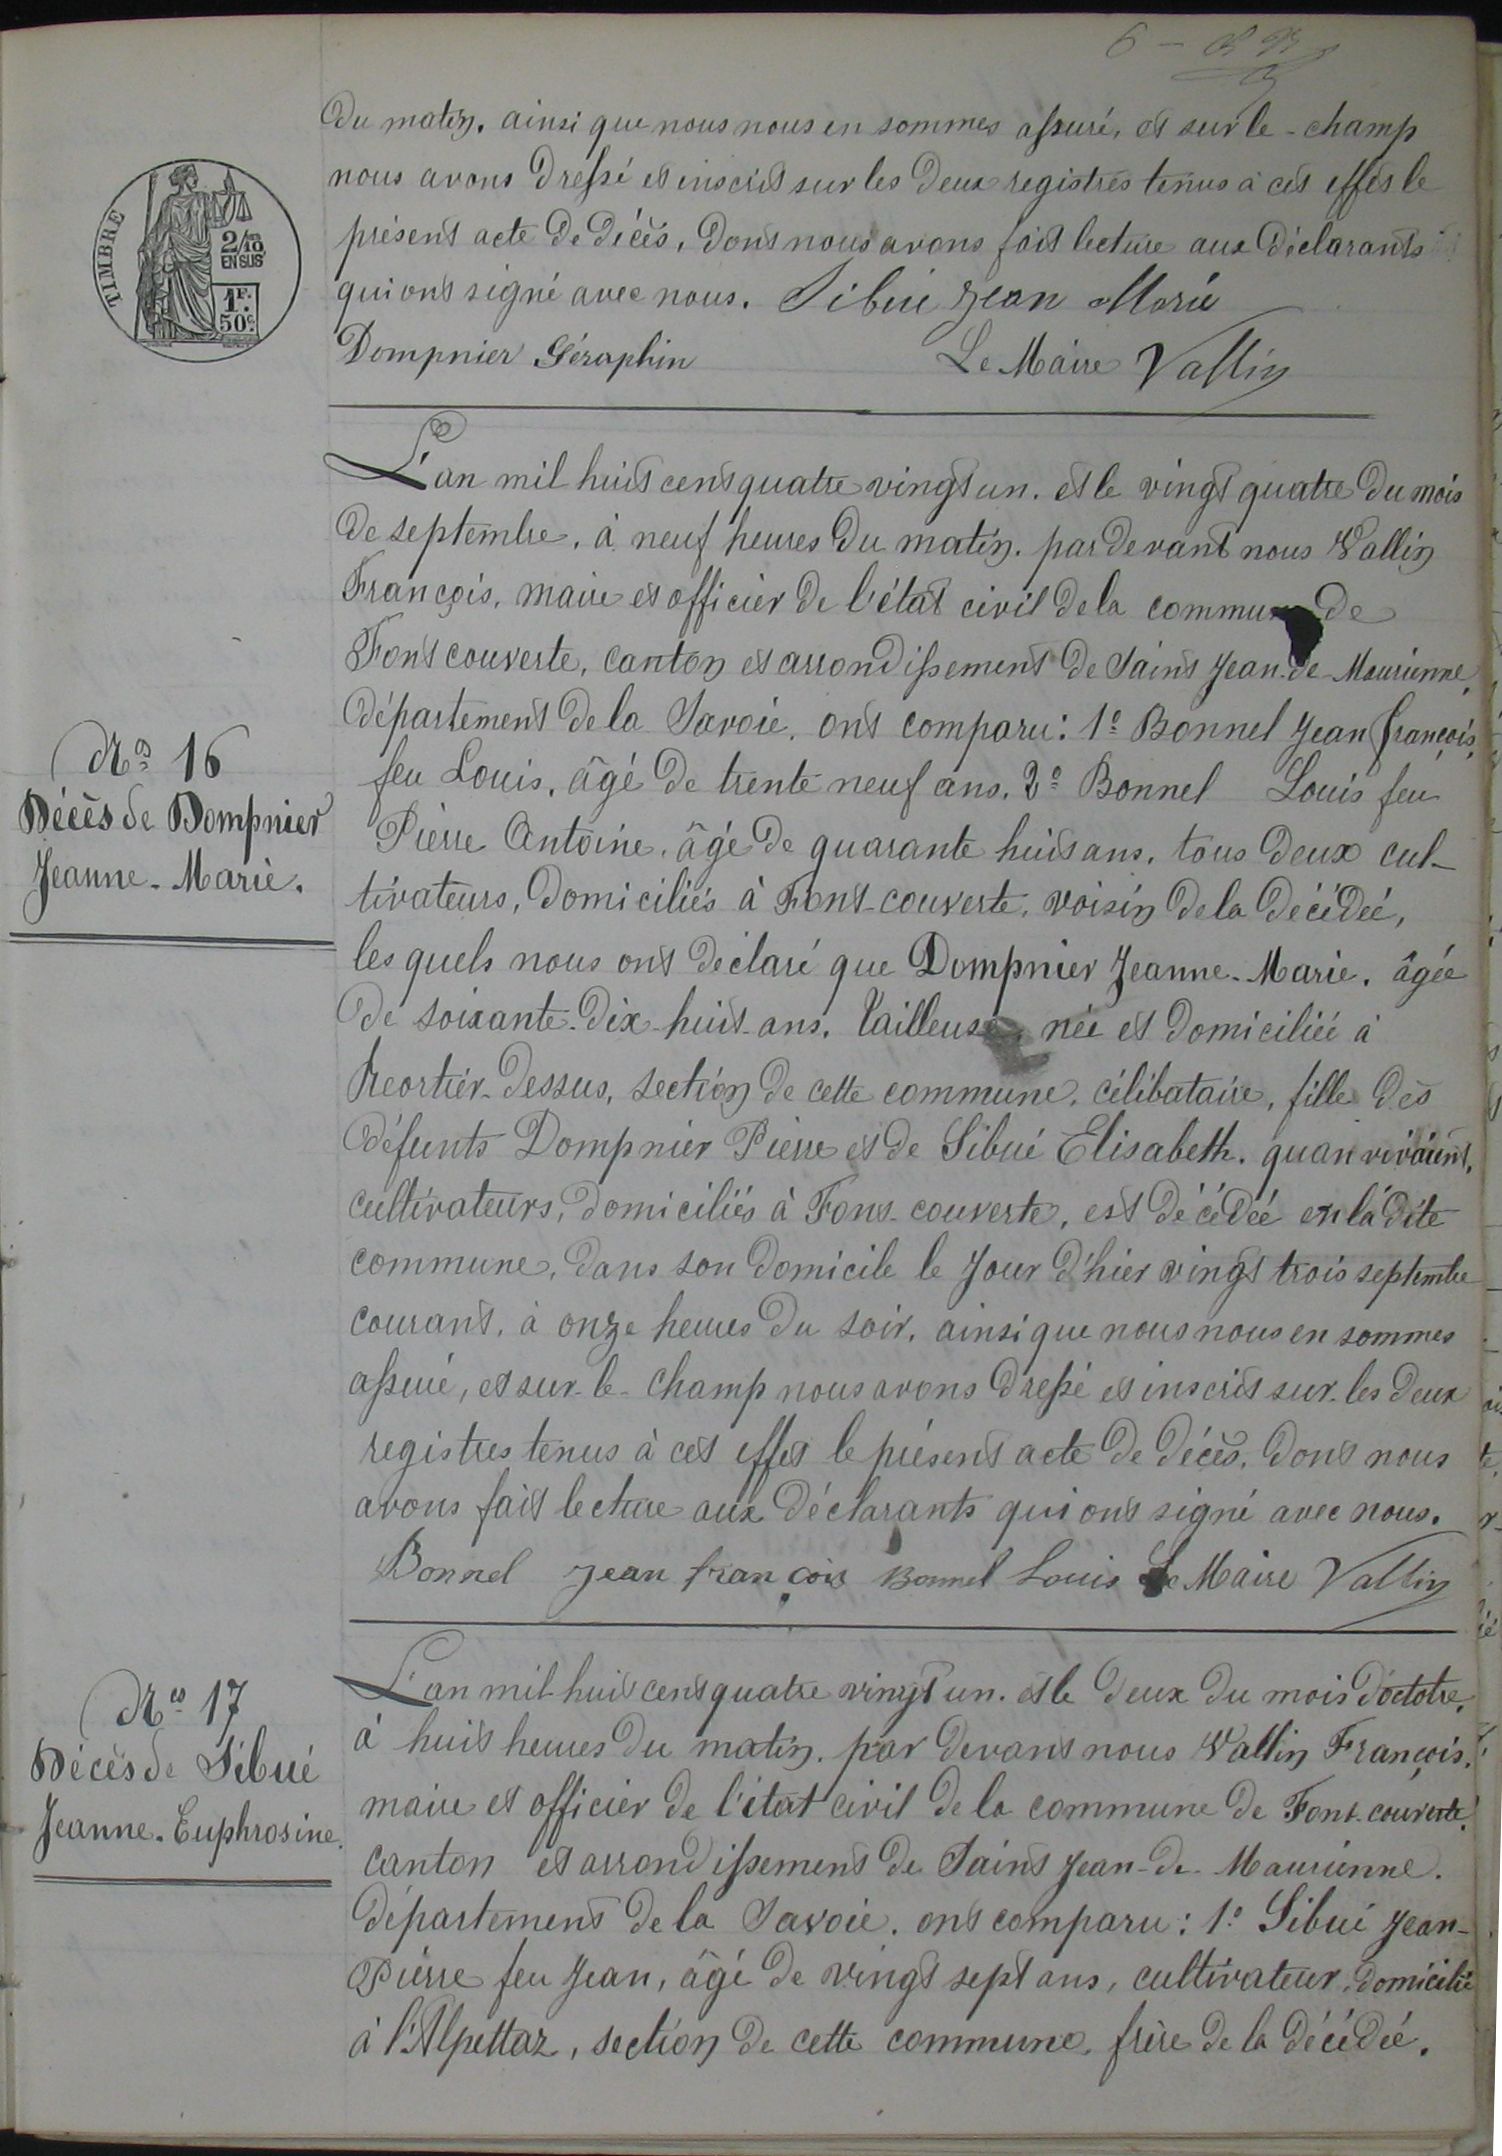 6 -
du matin. ainsi que nous nous en sommes assuré, et sur le-champ
nous avons dressé et inscrit sur les deux registres tenus à cet effet le
présent acte de décès, dont nous avons fait lecture aux déclarants
qui ont signé avec nous. Sibué Jean Marie
Dompnier Séraphin Le Maire Vallin
TIMBRE
2/10 EN SUS
1F. 50c.
L'an mil huit cent quatre vingt un. et le vingt quatre du mois
de septembre, à neuf heures du matin. par devant nous Vallin
François, maire et officier de l'état civil de la commune de
Font couverte, canton et arrondissement de Saint Jean-de-Maurienne,
département de la Savoie. ont comparu: 1º Bonnel Jean François,
feu Louis, âgé de trente neuf ans. 2º Bonnel Louis feu
Pierre Antoine, âgé de quarante huit ans, tous deux cul-
tivateurs, domiciliés à Font-couverte, voisin de la décédée,
les quels nous ont déclaré que Dompnier Jeanne-Marie. âgée
de soixante-dix-huit-ans. tailleuse, née et domiciliée à
Reortier-dessus, section de cette commune, célibataire, fille des
défunts Dompnier Pierre et de Sibué Elisabeth. quan vivaient,
cultivateurs, domiciliés à Font-couverte, est décédée en la dite
commune, dans son domicile le jour d'hier vingt trois septembre
courant, à onze heures du soir, ainsi que nous nous en sommes
assuré, et sur-le-champ nous avons dressé et inscrit sur les deux
registres tenus à cet effet le présent acte de décès, dont nous
avons fait lecture aux déclarants qui ont signé avec nous.
Bonnel Jean françois Bonnel Louis Le Maire Vallin
No 16
Décès de Dompnier
Jeanne-Marie.
L'an mil huit cent quatre vingt un. et le deux du mois d'octobre,
à huit heures du matin. par devant nous Vallin François,
maire et officier de l'état civil de la commune de Font-couverte,
canton et arrondissement de Saint Jean-de-Maurienne.
département de la Savoie. ont comparu: 1º Sibué Jean-
Pierre feu Jean, âgé de vingt sept ans, cultivateur, domicilié
à l'Alpettaz, section de cette commune, frère de la décédée.
No 17
Décès de Sibué
Jeanne-Euphrosine.